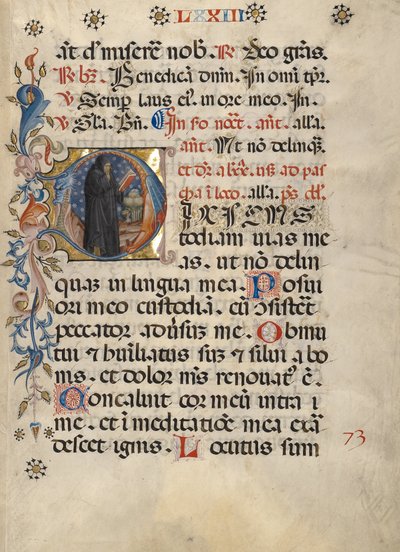 LXXIII
aūt d' miserē nob. ℟ Deo grās.
℟ br̄. Benedicā dnm̄. In omī tp̄r.
℣ Semp laus ei'. in ore meo. In.
℣ Gla. Bn̄. In sc̄o noct. ant. alla.
ant. Ut nō delinq̄.
et dr̄ a bxx. usq̄ ad pas
cha ī loco. alla. ps̄. dd.
DIXI CUS
todiam uias me
as. ut nō delin
quaȝ in lingua mea. Posui
ori meo custodiā. cū ɔsistēt
peccator adūsuȝ me. Obmu
tui ⁊ huiliatus suȝ ⁊ silui a bo
nis. et dolor m̄s renouat' ē.
Concaluit cor meū intra ī
me. et ī meditatiōe mea exar
descet ignis. Locutus sum
73